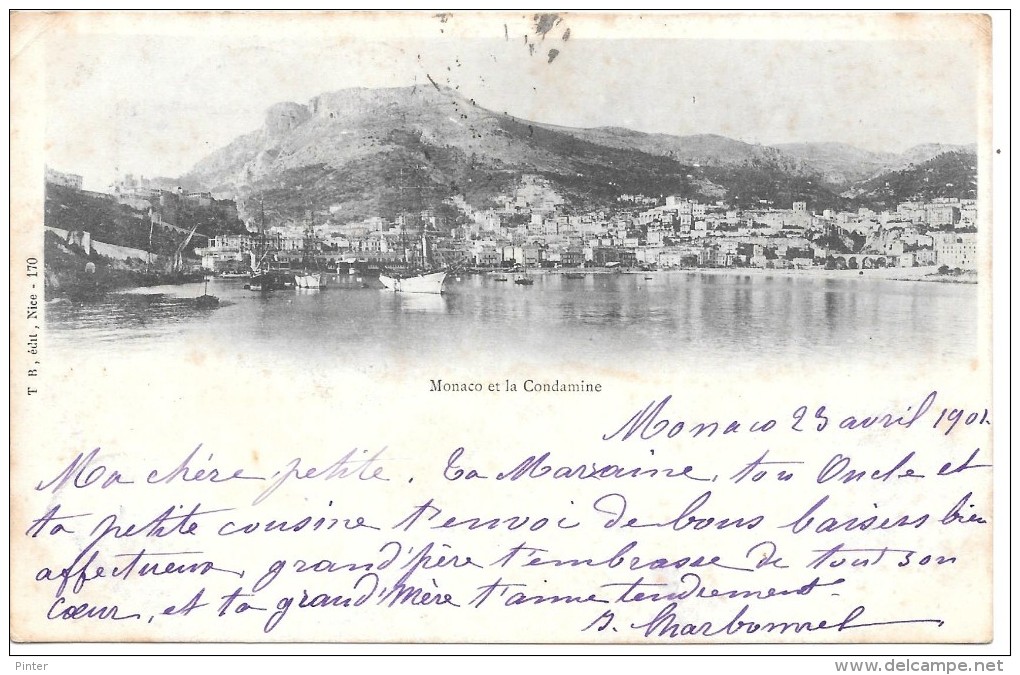 T B, édit, Nice - 170
Monaco et la Condamine
Monaco 23 avril 1901.
Ma chère petite. Ta Marraine, ton Oncle et
ta petite cousine t'envoi de bons baisers bien
affectueux, grand'père t'embrasse de tout son
cœur, et ta grand'Mère t'aime tendrement.
Charbonnel
Pinter
www.delcampe.net